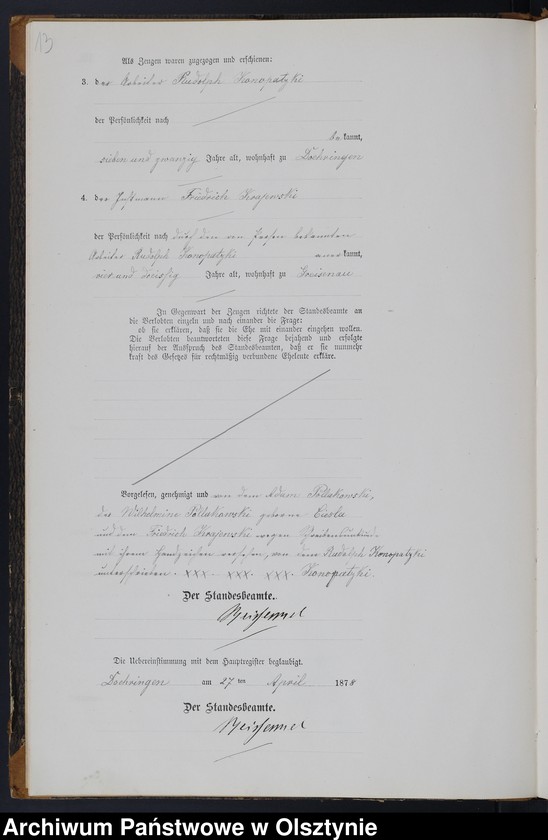 13
Als Zeugen waren zugezogen und erschienen:
3. der Arbeiter Rudolph Konopatzki
der Persönlichkeit nach
be kannt,
sieben und zwanzig Jahre alt, wohnhaft zu Döhringen
4. der Friedrich
der Persönlichkeit nach durch den von Person bekannten
Arbeiter Rudolph Konopatzki anerkannt,
vier und dreissig Jahre alt, wohnhaft zu
In Gegenwart der Zeugen richtete der Standesbeamte an
die Verlobten einzeln und nach einander die Frage:
ob sie erklären, daß sie die Ehe mit einander eingehen wollen.
Die Verlobten beantworteten diese Frage bejahend und erfolgte
hierauf der Ausspruch des Standesbeamten, daß er sie nunmehr
kraft des Gesetzes für rechtmäßig verbundene Eheleute erkläre.
Vorgelesen, genehmigt und von dem Adam Pollakowski,
der Wilhelmine Pollakowski geborne
und dem Friedrich wegen Schreibensunkunde
mit ihrem Handzeichen versehen, von dem Rudolph Konopatzki
unterschrieben. XXX. XXX. XXX. Konopatzki.
Der Standesbeamte.
Die Uebereinstimmung mit dem Hauptregister beglaubigt.
Doehringen am 27 ten April 1878
Der Standesbeamte.
Archiwum Państwowe w Olsztynie